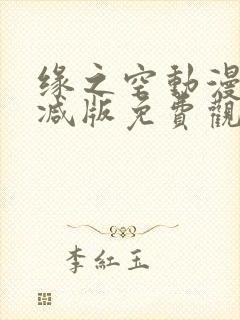 缘之空動漫
減版免費觀
李紅玉